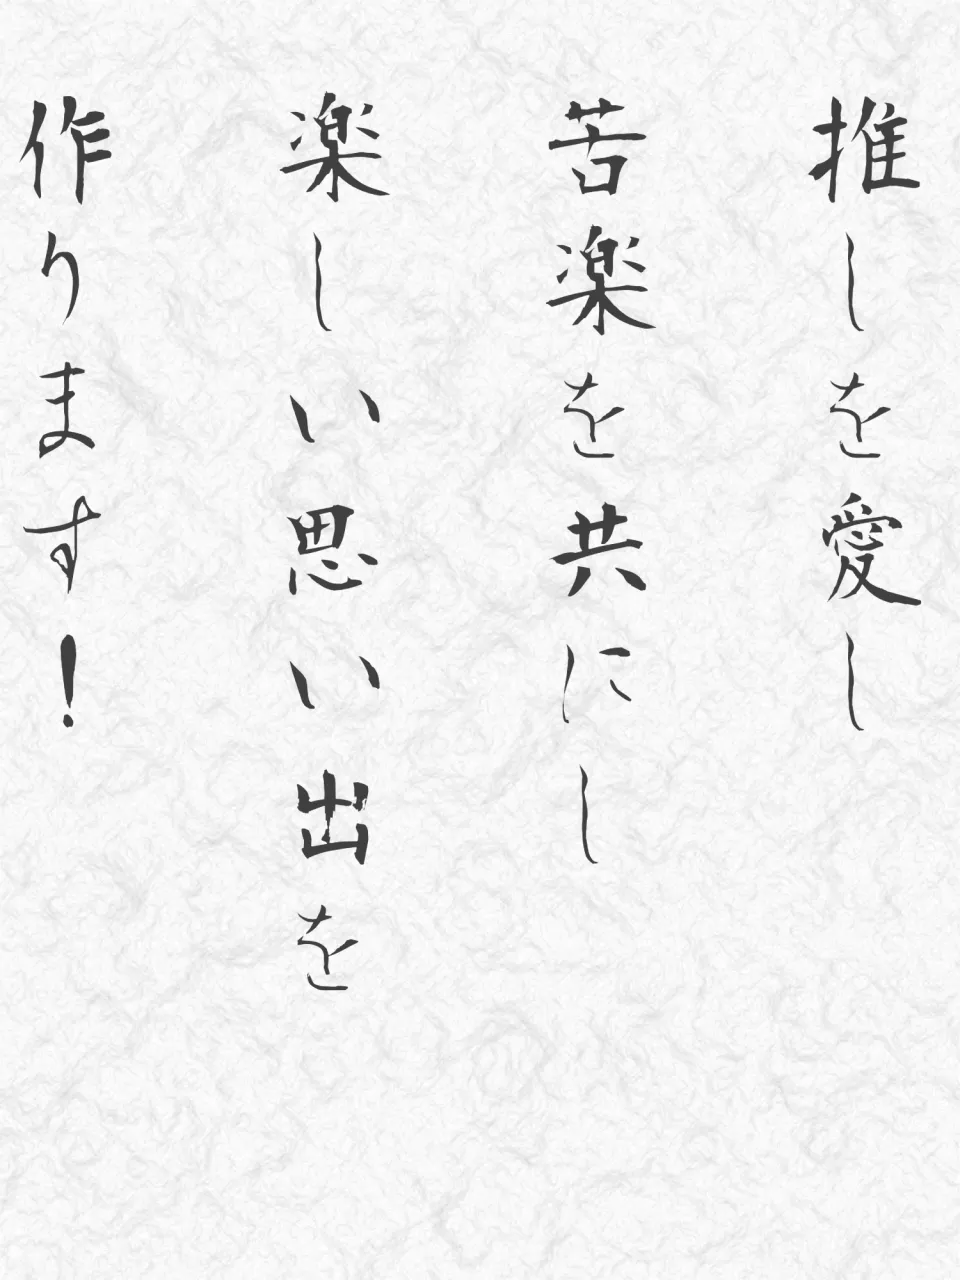 推しを愛し
苦楽を共にし
楽しい思い出を
作ります！